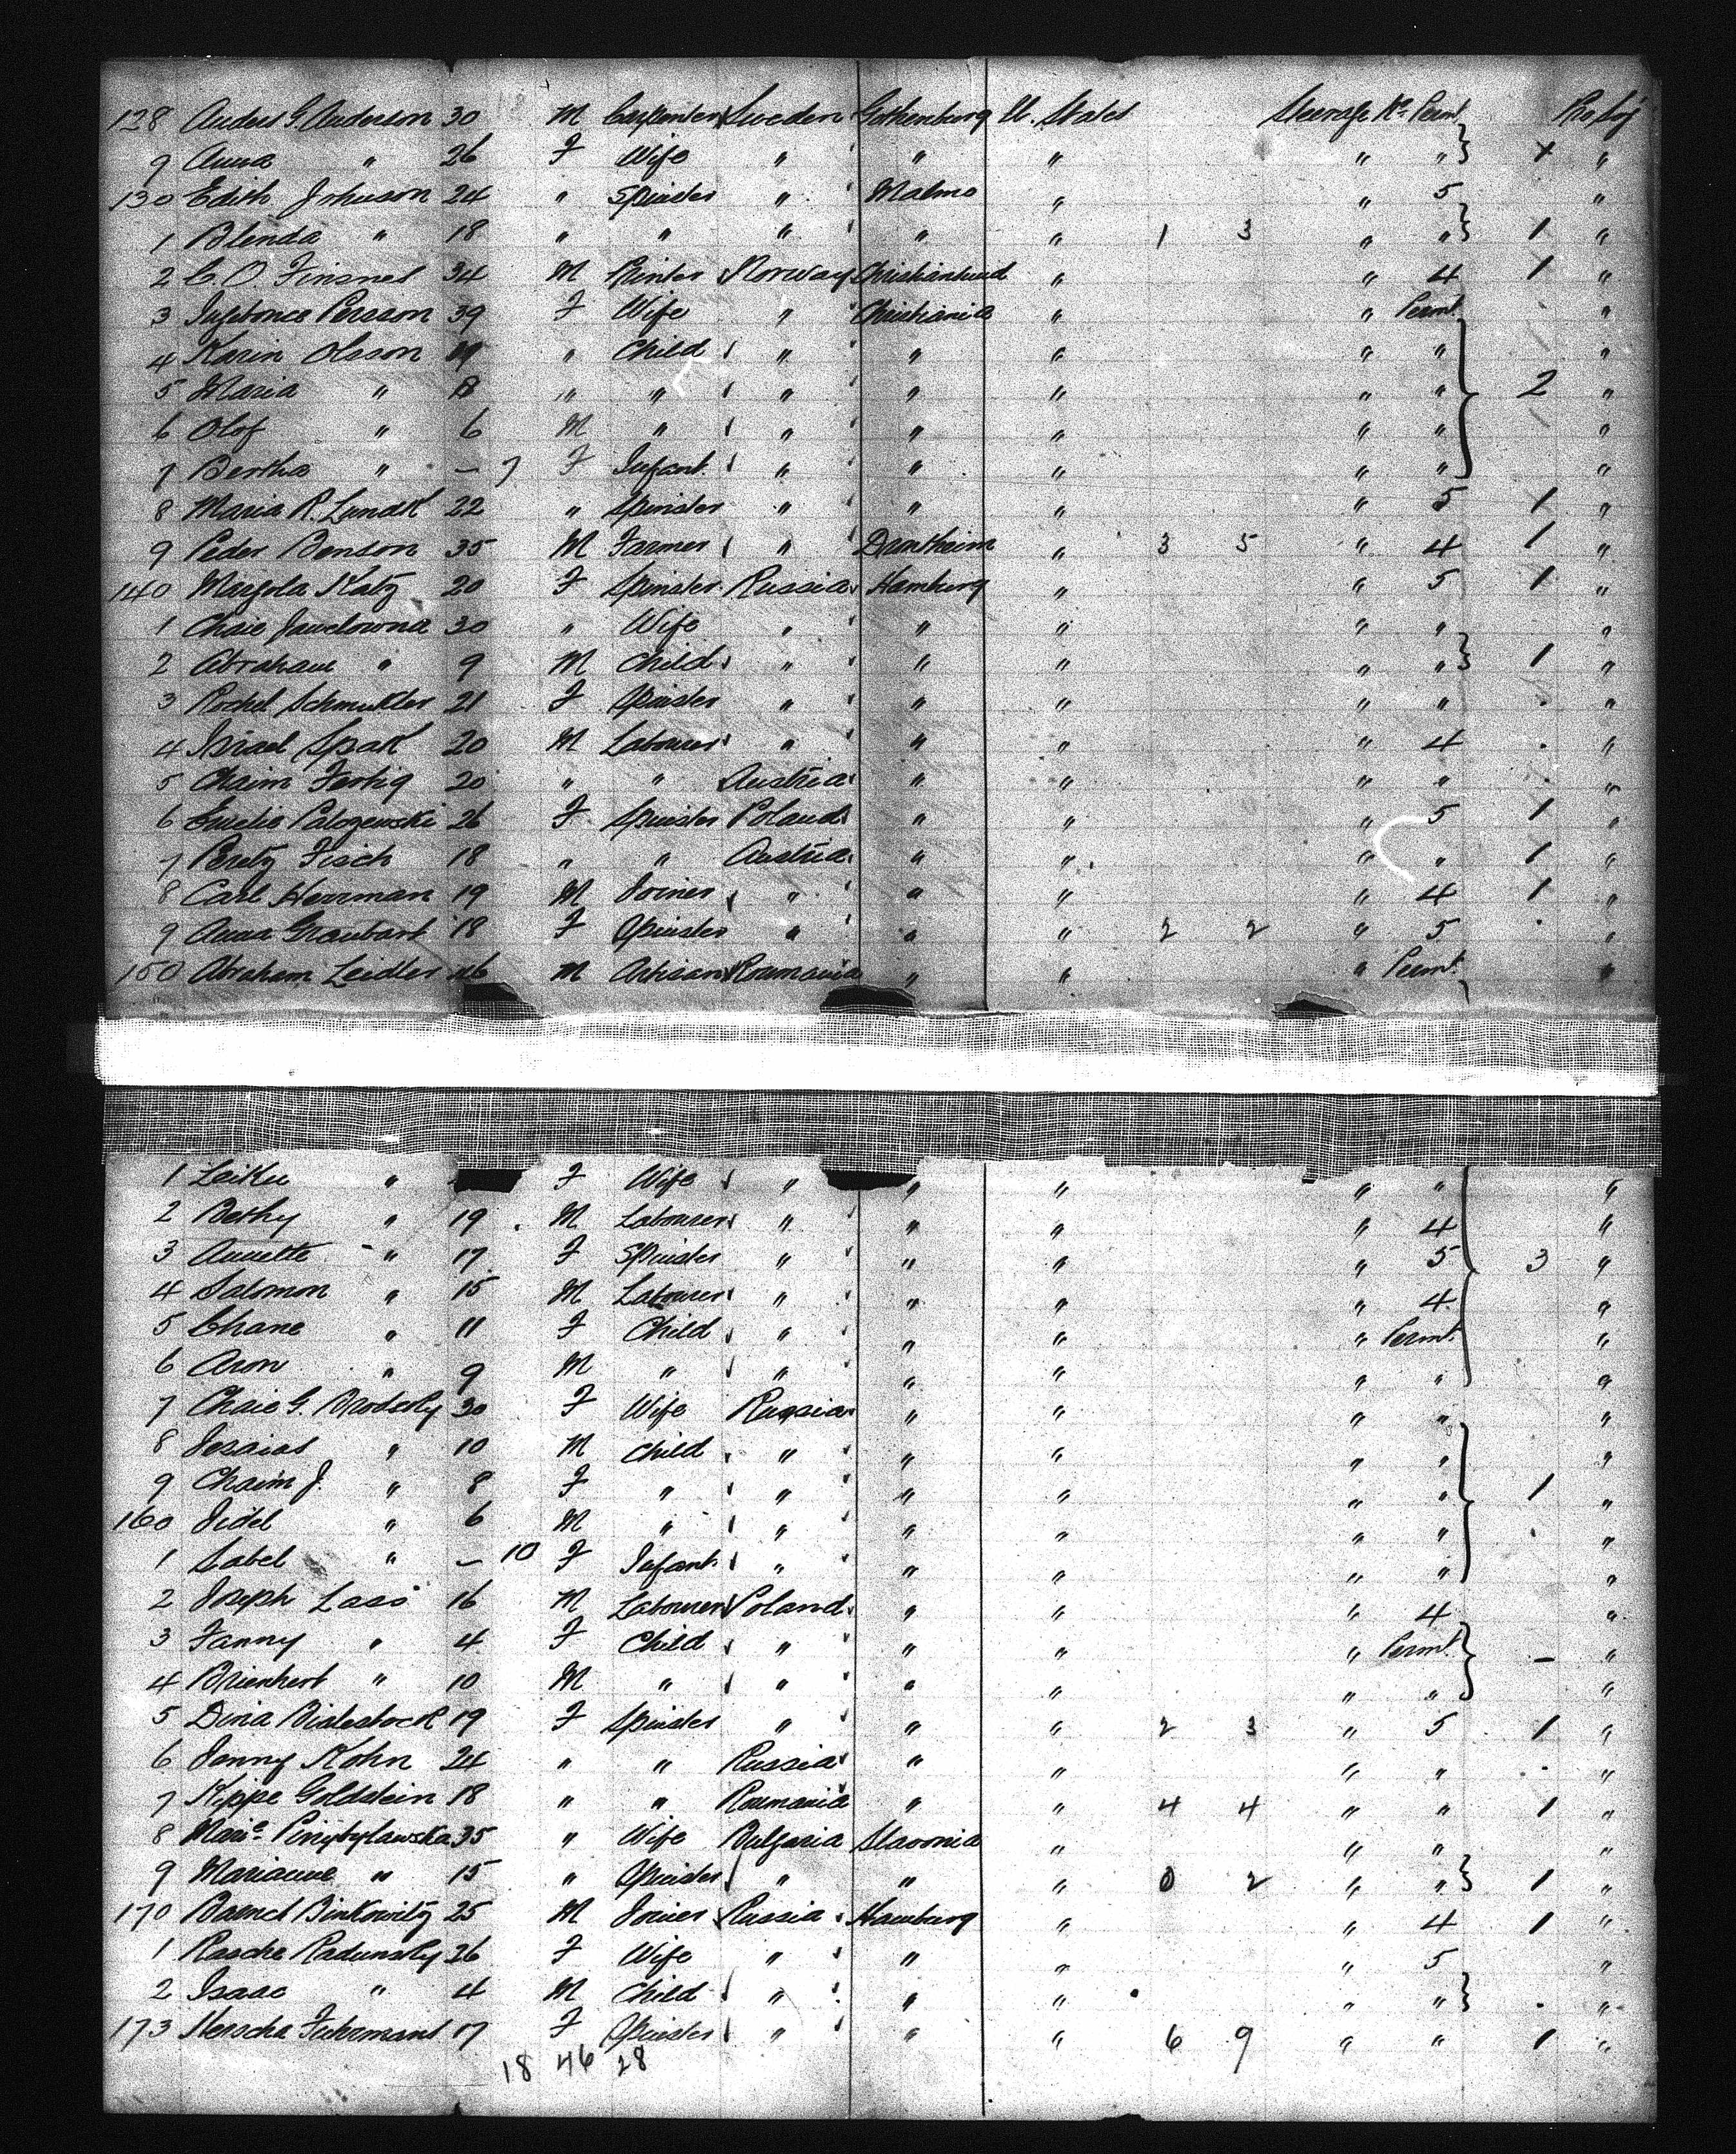 128 Anders G. Anderson 30 M Carpenter Sweden Gothenburg U. States Steerage Nr Permt Pro Sej
9 Anna " 26 F Wife " " " " " "
130 Edith Johnson 24 " Spinster " Malmo " " 5 "
1 Blenda " 18 " " " " " 1 3 " " 1 "
2 C.O. 34 M Printer Norway Christiansund " " 4 1 "
3 Persson 39 F Wife " Christiania " " Permt "
4 Karin Olsson " Child " " " " " "
5 Maria " " " " " " " " 2 "
6 Olof " 6 M " " " " " " "
7 Bertha " – 7 F Infant " " " " " "
8 Maria R. Lundk 22 " Spinster " " " " 5 1 "
9 Peder Benson 35 M Farmer " Drontheim " 3 5 " 4 1 "
140 Katz 20 F Spinster Russia Hamburg " " 5 1 "
1 Chaie 30 " Wife " " " " " "
2 Abraham " 9 M Child " " " " " 1 "
3 Rochel Schmukler 21 F Spinster " " " " " "
4 Israel Spak 20 M Labourer " " " " 4 "
5 Chaim Fertig 20 " " Austria " " " " "
6 Emilie 26 F Spinster Poland " " " 5 1 "
7 Peretz Fisch 18 " " Austria " " " " 1 "
8 Carl Herrman 19 M Joiner " " " " 4 1 "
9 Anna Graubart 18 F Spinster " " " 2 2 " 5 "
150 Abraham Leidler 46 M Artisan Roumania " " " Permt "
1 Leiku " F Wife " " " " " "
2 Bethy " 19 M Labourer " " " " 4 "
3 Annette " 17 F Spinster " " " " 5 3 "
4 Salomon " 15 M Labourer " " " " 4 "
5 Chane " 11 F Child " " " " Permt "
6 Aron " 9 M " " " " " " "
7 Chaie G. Brodesky 30 F Wife Russia " " " " "
8 Jesaias " 10 M Child " " " " " "
9 Chaim J. " 8 F " " " " " " 1 "
160 Jidel " 6 M " " " " " " "
1 Sabel " – 10 F Infant " " " " " "
2 Joseph Lass 16 M Labourer Poland " " " 4 "
3 Fanny " 4 F Child " " " " Permt – "
4 " 10 M " " " " " " "
5 Dina 19 F Spinster " " " 2 3 " 5 1 "
6 Jenny Kohn 24 " " Russia " " " " "
7 Kippe Goldstein 18 " " Roumania " " 4 4 " " 1 "
8 Marie 35 " Wife Bulgaria Slavonia " " " "
9 Marianne " 15 " Spinster " " " 0 2 " " 1 "
170 Binkowitz 25 M Joiner Russia Hamburg " " 4 1 "
1 Rasche Radunsky 26 F Wife " " " " 5 "
2 Isaac " 4 M Child " " " " " "
173 Herscha Fuhrmans 17 F Spinster " " " 6 9 " " 1 "
18 46 28